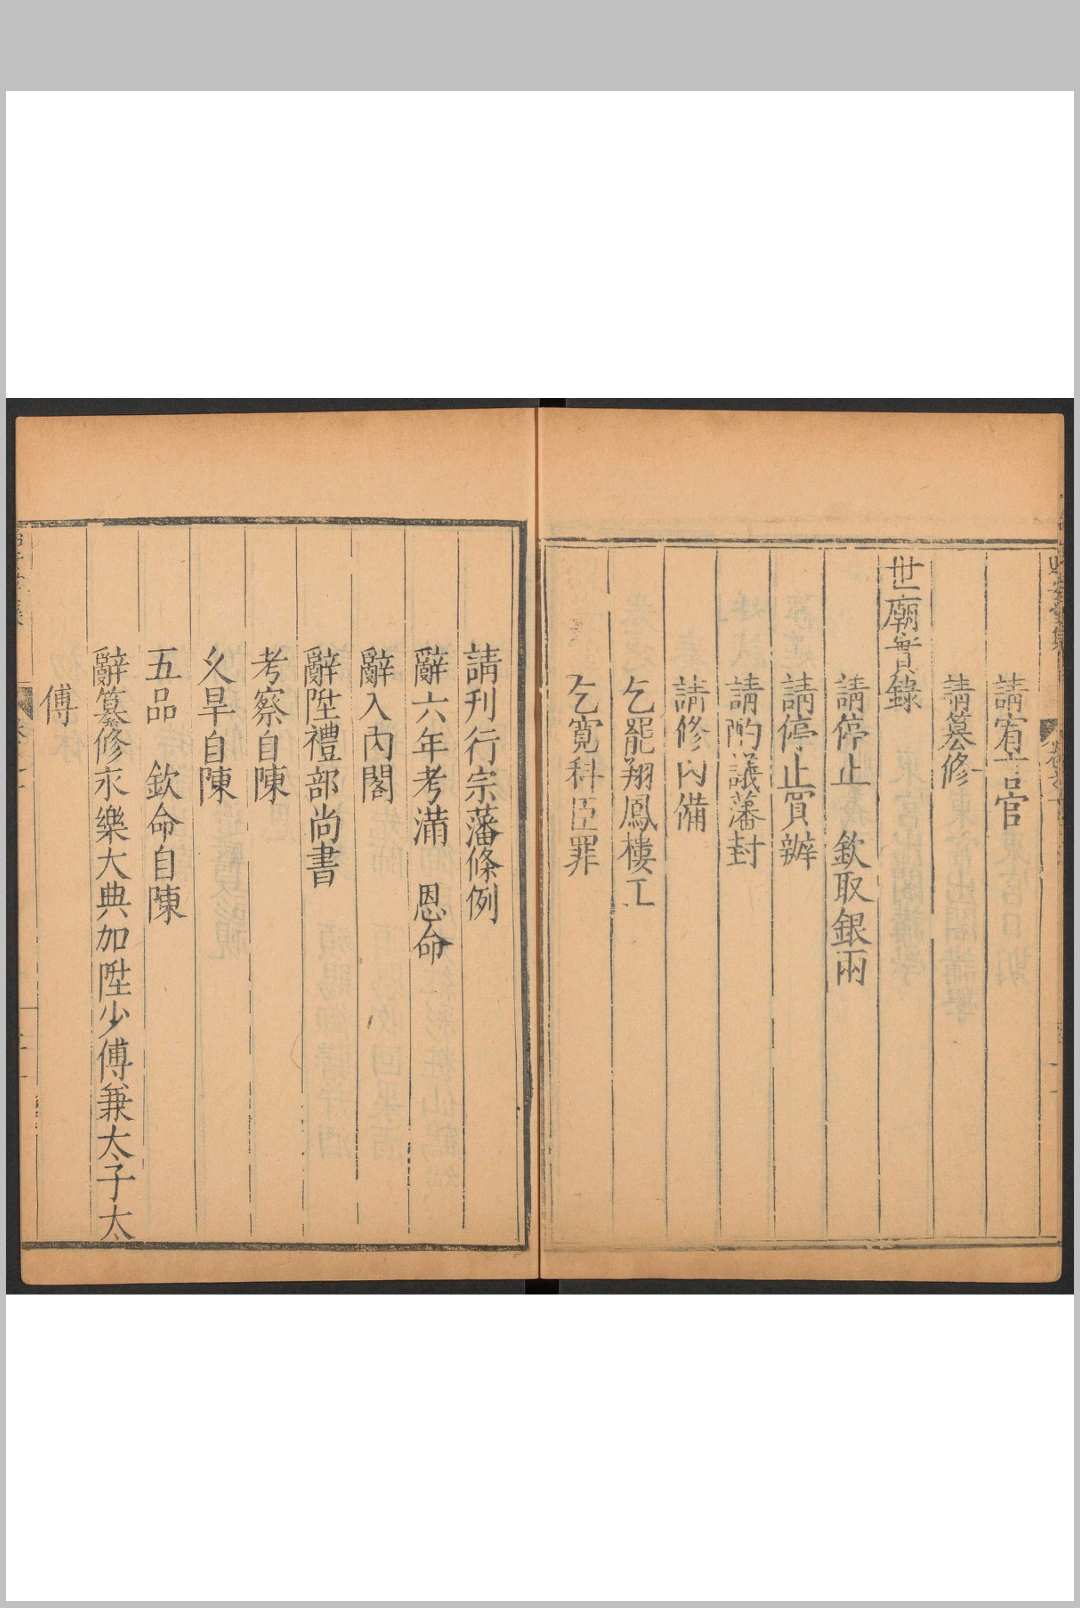 請宥言官
請纂修
世廟實錄
請停止 欽取銀兩
請停止買辦
請酌議藩封
請修內備
乞罷翔鳳樓工
乞寬科臣罪
請刊行宗藩條例
辭六年考滿 恩命
辭入內閣
辭陞禮部尚書
考察自陳
乆旱自陳
五品 欽命自陳
辭纂修永樂大典加陞少傅兼太子太
傅